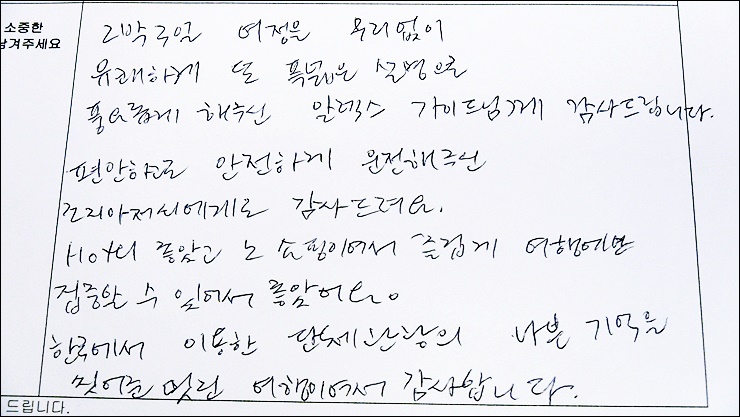 소중한
남겨주세요
2박 3일 여정을 무리없이
유쾌하게 또 폭넓은 설명으로
풍요롭게 해주신 알렉스 가이드님께 감사드립니다.
편안하고 안전하게 운전해주신
죠지아저씨에게도 감사드려요.
Hotel 좋았고 노 쇼핑이어서 즐겁게 여행에만
집중할 수 있어서 좋았어요.
한국에서 이용한 단체관광의 나쁜 기억을
씻어준 멋진 여행이어서 감사합니다.
드립니다.